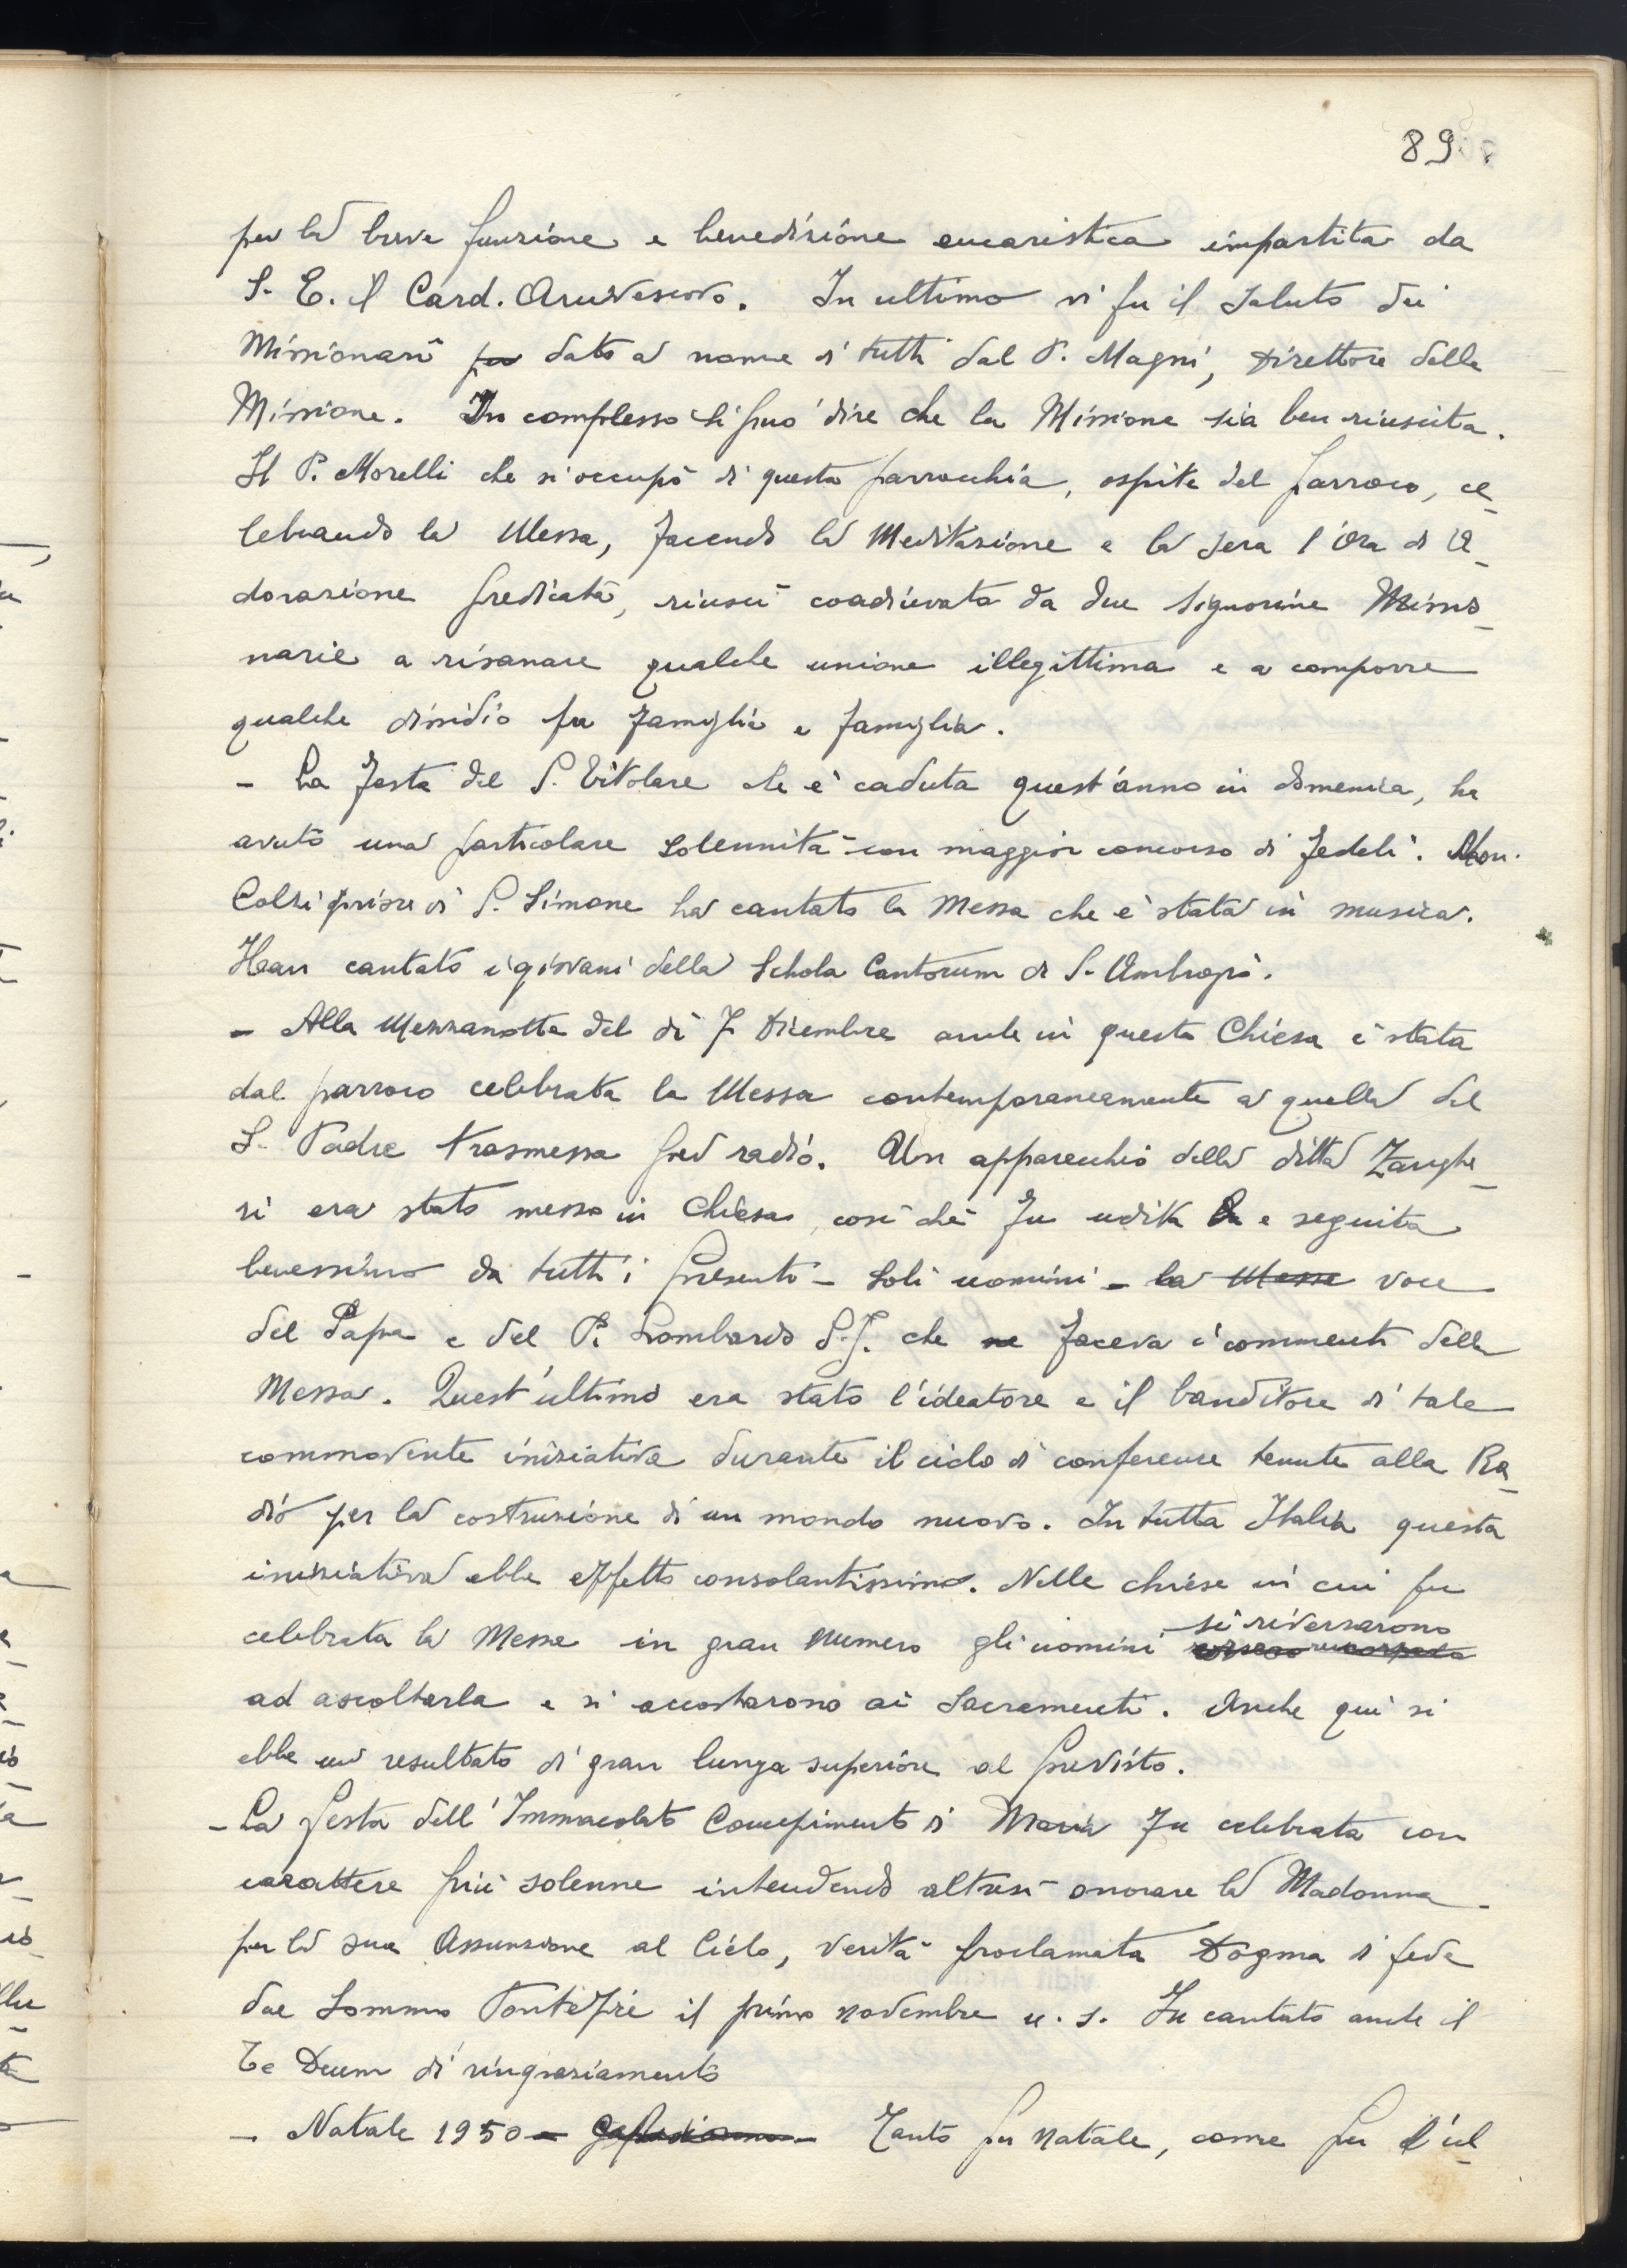 89
per la breve funzione e benedizione eucaristica impartita da
S. E. il Card. Arcivescovo. In ultimo vi fu il saluto dei
Missionari per dato a nome di tutti dal P. Magni, Direttore della
Missione. In complesso si può dire che la Missione sia ben riuscita.
Il P. Morelli che si occupò di questa parrocchia, ospite del parroco, ce-
lebrando la Messa, facendo la Meditazione e la sera l'Ora di A-
dorazione predicata, riuscì coadiuvato da due Signorine Missio-
narie a risanare qualche unione illegittima e a comporre
qualche dissidio fra famiglia e famiglia.
- La festa del S. Titolare che è caduta quest'anno in domenica, ha
avuto una particolare solennità con maggior concorso di fedeli. Mon.
Colzi priore di S. Simone ha cantato la Messa che è stata in musica.
Han cantato i giovani della Schola Cantorum di S. Ambrogio.
- Alla Mezzanotte del dì 7 Dicembre anche in questa Chiesa è stata
dal parroco celebrata la Messa contemporaneamente a quella del
S. Padre trasmessa per radio. Un apparecchio della ditta Zanghe-
ri era stato messo in Chiesa, così che fu udita e seguita
benessimo da tutti i presenti - soli uomini - la Messa voce
del Papa e del P. Lombardo S.J. che ne faceva i commenti della
Messa. Quest'ultimo era stato l'ideatore e il banditore di tale
commovente iniziativa durante il ciclo di conferenze tenute alla Ra-
dio per la costruzione di un mondo nuovo. In tutta Italia questa
iniziativa ebbe effetto consolantissimo. Nelle chiese in cui fu
celebrata la Messa in gran numero gli uomini si riversarono
ad ascoltarla e si accostarono ai Sacramenti. Anche qui si
ebbe un resultato di gran lunga superiore al previsto.
- La festa dell'Immacolato Concepimento di Maria fu celebrata con
carattere più solenne intendendo altresì onorare la Madonna
per la sua Assunzione al Cielo, verità proclamata Dogma di fede
dal Sommo Pontefice il primo novembre u. s. Fu cantato anche il
Te Deum di ringraziamento
- Natale 1950 - Tanto per Natale, come per l'ul-